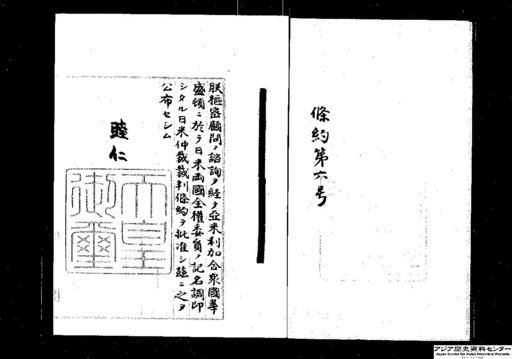 條約第六号
朕樞密顧問ノ諮詢ヲ経タ亞米利加合衆國華
盛頓ニ於テ日米両國全權委員ノ記名調印
シタル日米仲裁裁判條約ヲ批准シ茲ニ之ヲ
公布セシム
睦仁
天皇御璽
アジア歴史資料センター
Japan Center for Asian Historical Records